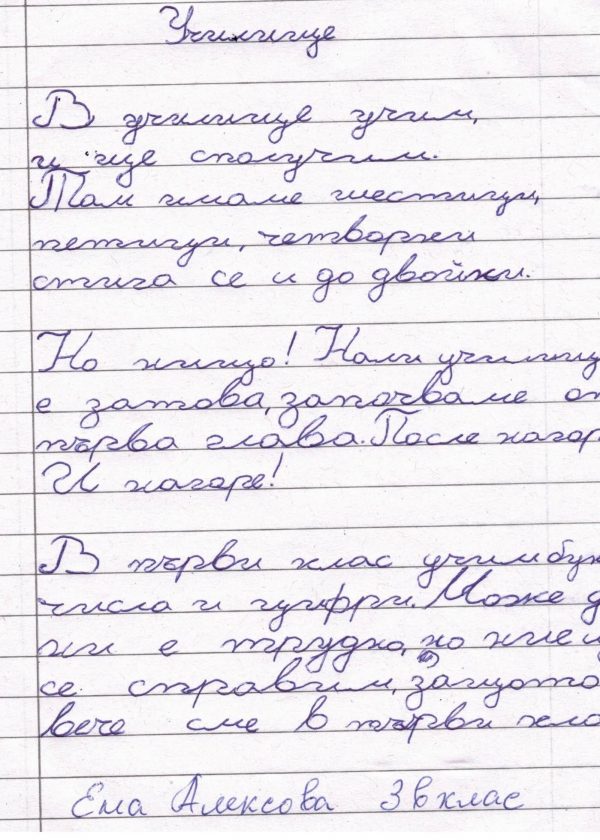 Училище
В училище учим,
и ще сполучим.
Там имаме шестици,
петици, четворки
стига се и до двойки.
Но нищо! Нали училищ
е затова, започваме от
първа глава. После нагор
И нагоре!
В първи клас учим бук
числа и цифри. Може д
ни е трудно, но ние щ
се справим, защото
вече сме в първи кла
Ема Алексова 3в клас